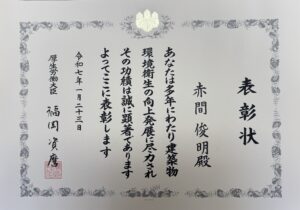 表彰状
赤間俊明殿
あなたは多年にわたり建築物
環境衛生の向上発展に尽力され
その功績は誠に顕著であります
よってここに表彰します
令和七年一月二十三日
厚生労働大臣 福岡資麿